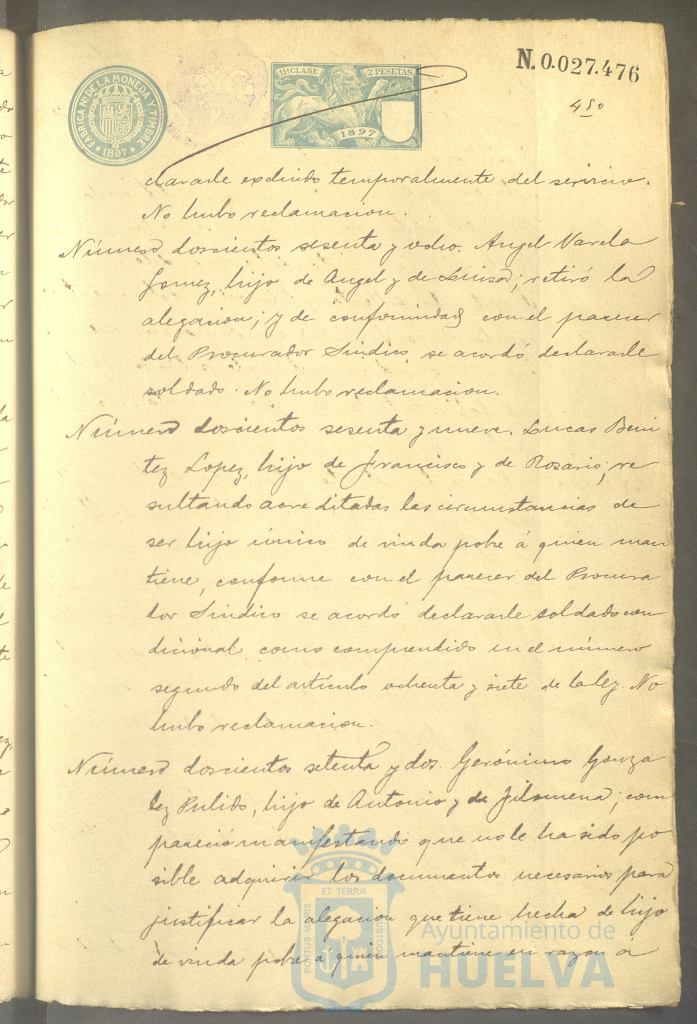 FABRICA Nal DE LA MONEDA Y TIMBRE
1897
11ª CLASE 2 PESETAS
1897
N.0.027.476
clararle excluido temporalmente del servicio.
No hubo reclamacion.
Número doscientos sesenta y ocho. Angel Varela
Gomez, hijo de Angel y de Luisa; retiró la
alegacion; y de conformidad con el parecer
del Procurador Sindico se acordó declararle
soldado. No hubo reclamacion.
Número doscientos sesenta y nueve. Lucas Beni
tez Lopez, hijo de Francisco y de Rosario; re
sultando acreditadas las circunstancias de
ser hijo único de viuda pobre á quien man
tiene, conforme con el parecer del Procura
dor Sindico se acordó declararle soldado con
dicional como comprendido en el número
segundo del artículo ochenta y siete de la ley. No
hubo reclamacion.
Número doscientos setenta y dos. Gerónimo Gonza
lez Pulido, hijo de Antonio y de Filomena; com
pareció manifestando que no le ha sido po
sible adquirir los documentos necesarios para
justificar la alegacion que tiene hecha de hijo
de viuda pobre á quien mantiene en razon á
PORTUS MARIS ET TERRÆ CUSTODIA
Ayuntamiento de
HUELVA